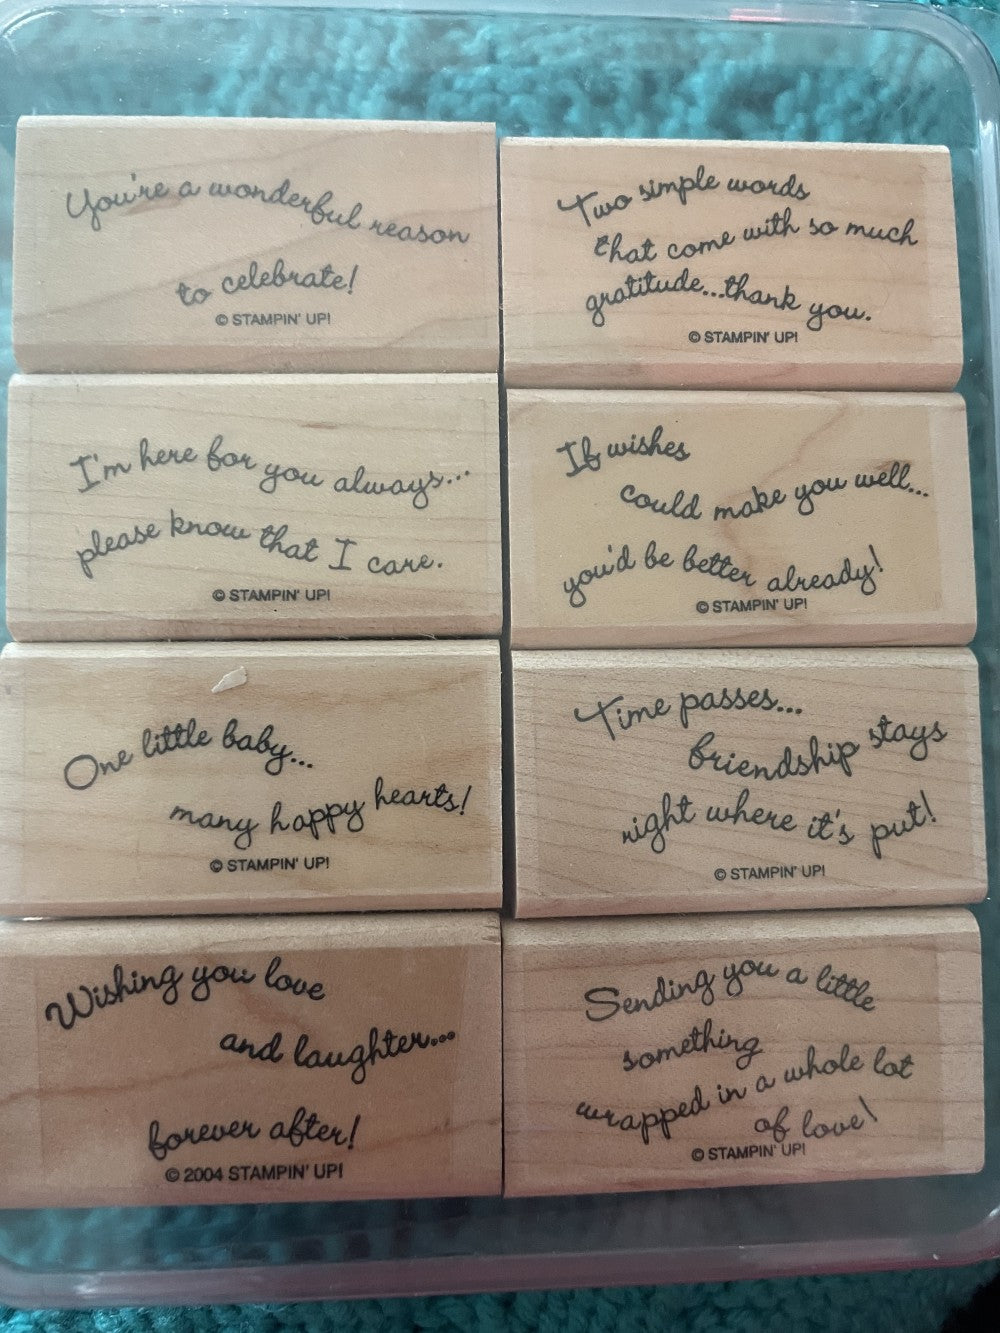 You're a wonderful reason
to celebrate!
© STAMPIN' UP!
Two simple words
that come with so much
gratitude...thank you.
© STAMPIN' UP!
I'm here for you always...
please know that I care.
© STAMPIN' UP!
If wishes
could make you well...
you'd be better already!
© STAMPIN' UP!
One little baby...
many happy hearts!
© STAMPIN' UP!
Time passes...
friendship stays
right where it's put!
© STAMPIN' UP!
Wishing you love
and laughter...
forever after!
© 2004 STAMPIN' UP!
Sending you a little
something
wrapped in a whole lot
of love!
© STAMPIN' UP!